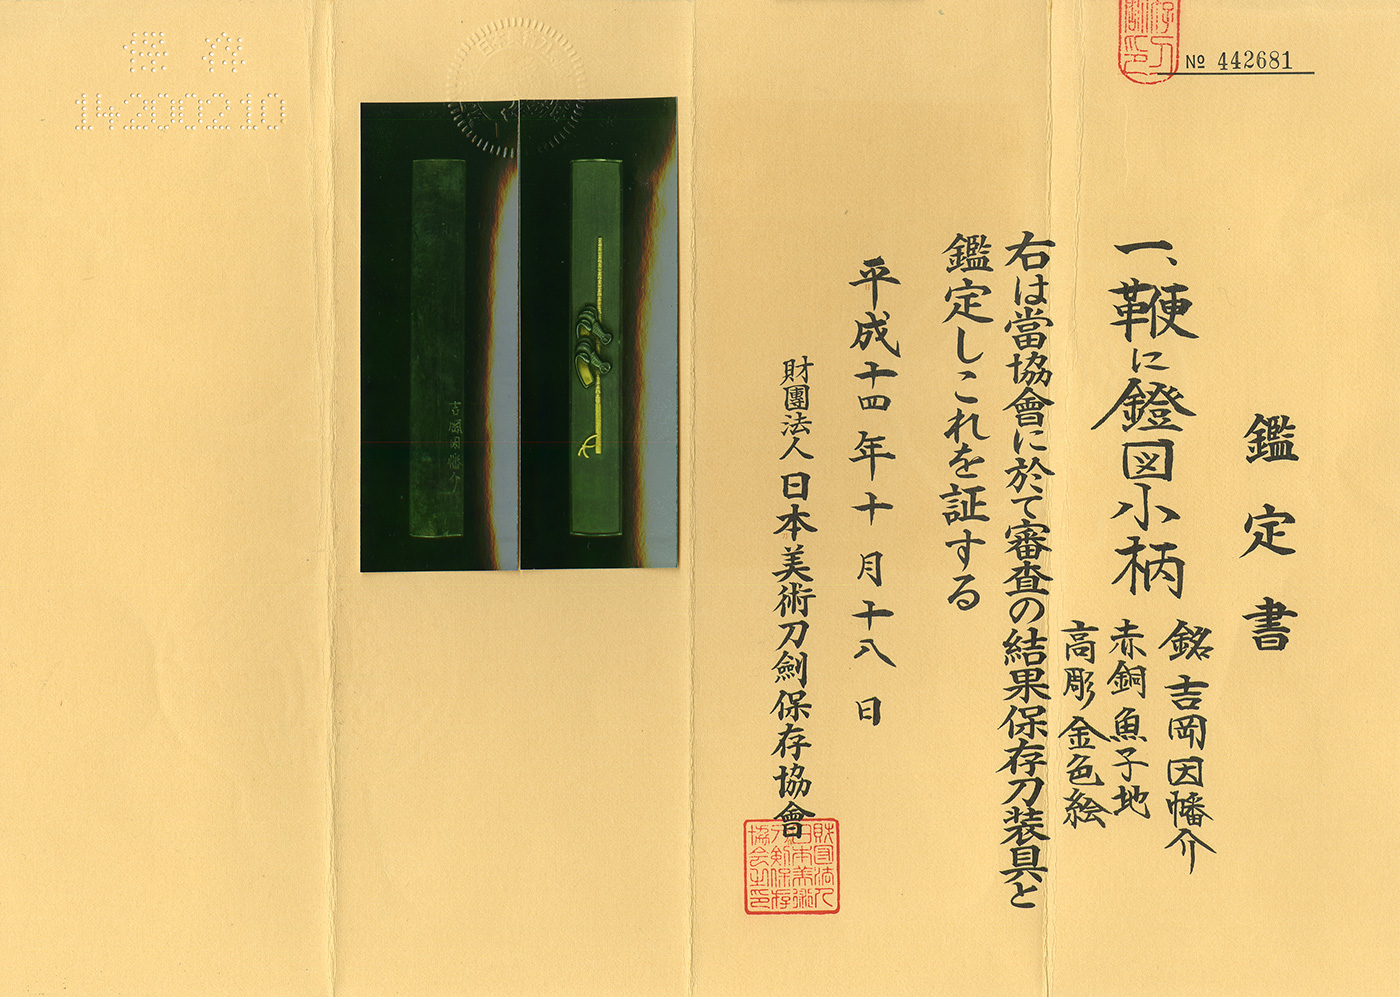 № 442681
鑑定書
一、鞭に鐙図小柄
銘 吉岡因幡介
赤銅魚子地
高彫金色絵
右は當協會に於て審査の結果保存刀装具と
鑑定しこれを証する
平成十四年十月十八日
財團法人 日本美術刀劍保存協會
財団法人
日本美術
刀剣保存
協会之印
吉岡因幡介
保存
14200210